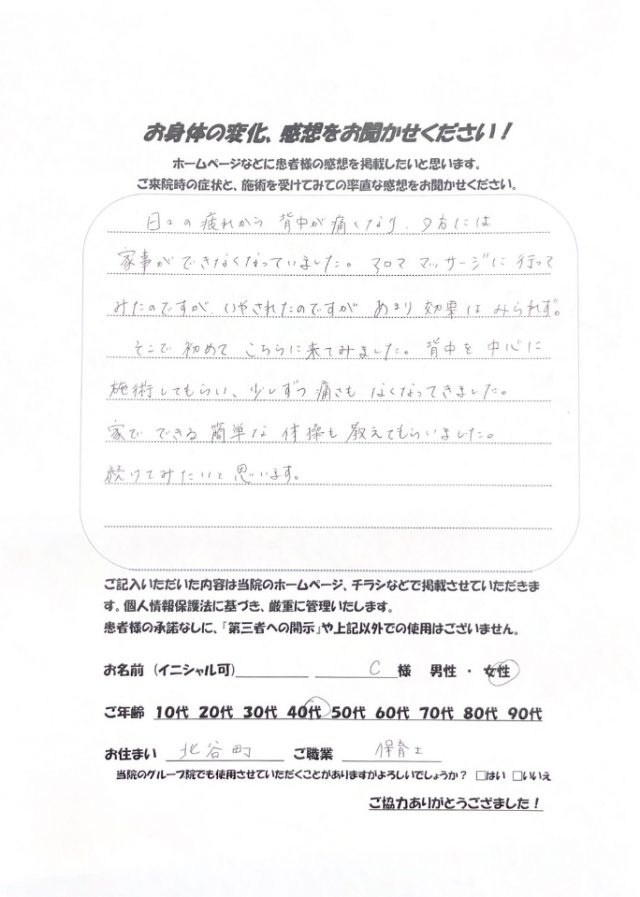 お身体の変化、感想をお聞かせください!
ホームページなどに患者様の感想を掲載したいと思います。
ご来院時の症状と、施術を受けてみての率直な感想をお聞かせください。
日々の疲れから 背中が痛くなり、夕方には
家事ができなくなっていました。アロママッサージに行って
みたのですが いやされたのですが あまり効果はみられず。
そこで初めてこちらに来てみました。背中を中心に
施術してもらい、少しずつ痛さもなくなってきました。
家でできる簡単な体操も教えてもらいました。
続けてみたいと思います。
ご記入いただいた内容は当院のホームページ、チラシなどで掲載させていただきま
す。個人情報保護法に基づき、厳重に管理いたします。
患者様の承諾なしに、「第三者への開示」や上記以外での使用はございません。
お名前(イニシャル可) C 様 男性・女性
ご年齢 10代 20代 30代 40代 50代 60代 70代 80代 90代
お住まい 北谷町 ご職業 保育士
当院のグループ院でも使用させていただくことがありますがよろしいでしょうか? □はい □いいえ
ご協力ありがとうござました!